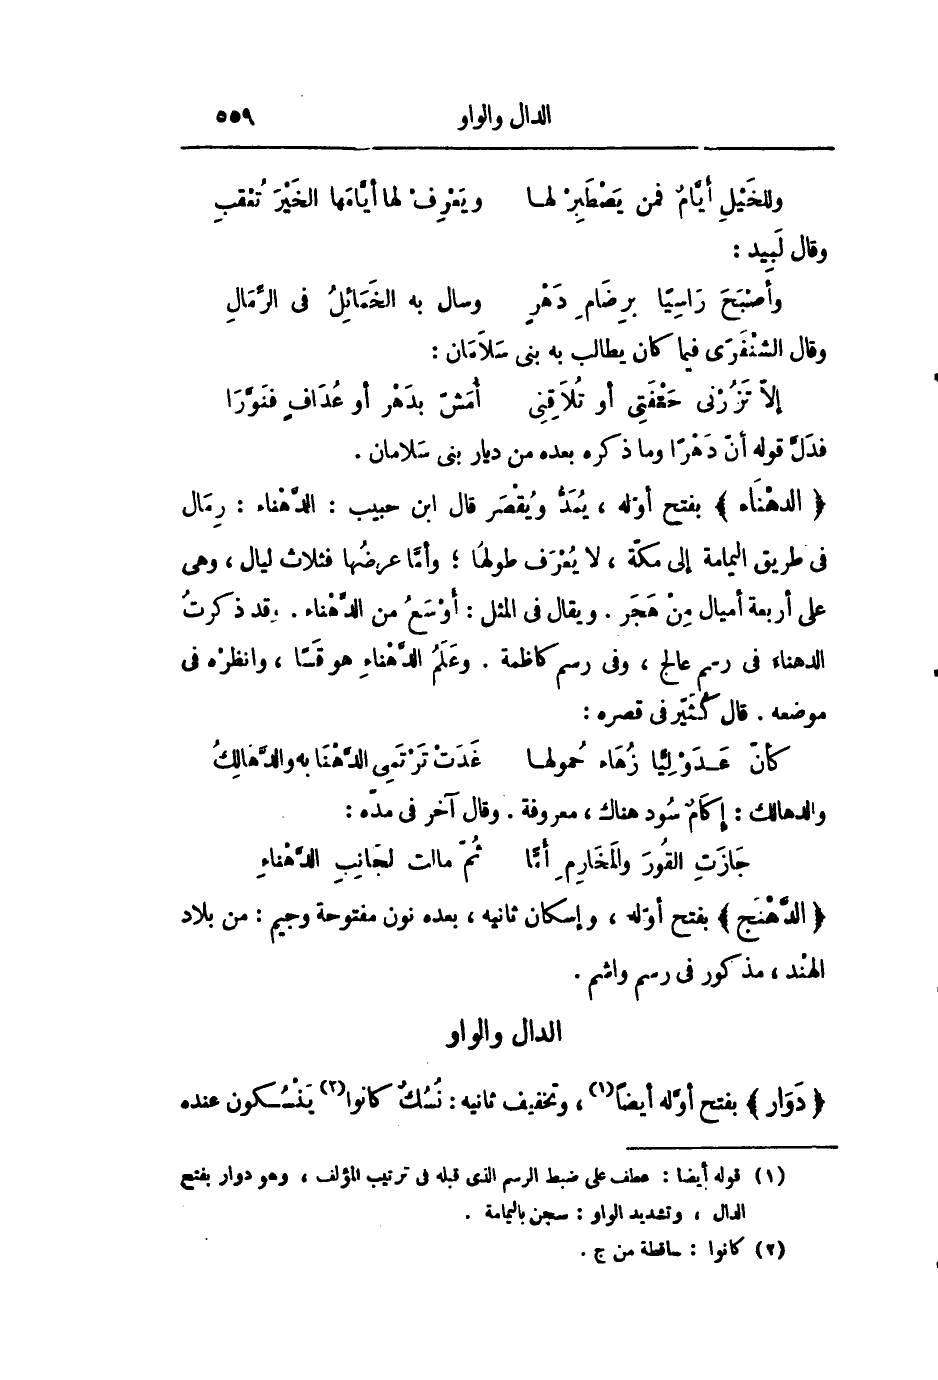 الدال والواو ٥٥٩
وللخَيْلِ أيَّامٌ فمن يَصْطَبِرْ لهـا ويَعْرِفْ لها أيَّامَها الخَيْرَ تُعْقبِ
وقال لَبِيد :
وأَصْبَحَ رَاسِيًا بِرِضَامِ دَهْرٍ وسال به الخَمَائِلُ فى الرِّمَالِ
وقال الشنْفَرَى فيما كان يطالب به بنى سَلاَمَان :
إلاّ تَزُرْنى حَتْفَتِى أو تُلاَقِنِى أُمَشّ بدَهْرٍ أو عُدَافٍ فنَوَّرَا
فدَلَّ قوله أنّ دَهْرًا وما ذكره بعده من ديار بنى سَلامان .
﴿ الدهْنَاء ﴾ بفتح أوّله ، يُمَدُّ ويُقْصَر قال ابن حبيب : الدَّهْناء : رِمَال
فى طريق اليمامة إلى مكّة ، لا يُعْرَف طولهُا ؛ وأمَّا عرضُها فثلاث ليال ، وهى
على أربعة أميال مِنْ هَجَر . ويقال فى المثل : أوْسَعُ من الدَّهْناء . وقد ذكرتُ
الدهناء فى رسم عالج ، وفى رسم كاظمة . وعَلَمُ الدَّهْناءِ هو قَسًا ، وانظرْه فى
موضعه . قال كُثَيّر فى قصره :
كأنّ عَـدَوْلِيًّا زُهَاء حُمولهـا غَدَتْ تَرْتَمِى الدَّهْنَا به والدَّهَالِكُ
والدهالك : إكَامٌ سُود هناك ، معروفة . وقال آخر فى مدّه :
جَازَتِ القُورَ والمَخَارِمِ أمًّا ثُمّ مالت لجَانِبِ الدَّهْناءِ
﴿ الدَّهْنَج ﴾ بفتح أوّله ، وإسكان ثانيه ، بعده نون مفتوحة وجيم : من بلاد
الهنْد ، مذكور فى رسم واشم .
الدال والواو
﴿ دَوَار ﴾ بفتح أوّله أيضاً(١) ، وتخفيف ثانيه : نُسُكٌ كانوا(٢) يَنْسُـكون عنده
(١) قوله أيضا : عطف على ضبط الرسم الذى قبله فى ترتيب المؤلف ، وهو دوار بفتح
الدال ، وتشديد الواو : سجن باليمامة .
(٢) كانوا : ساقطة من ج .